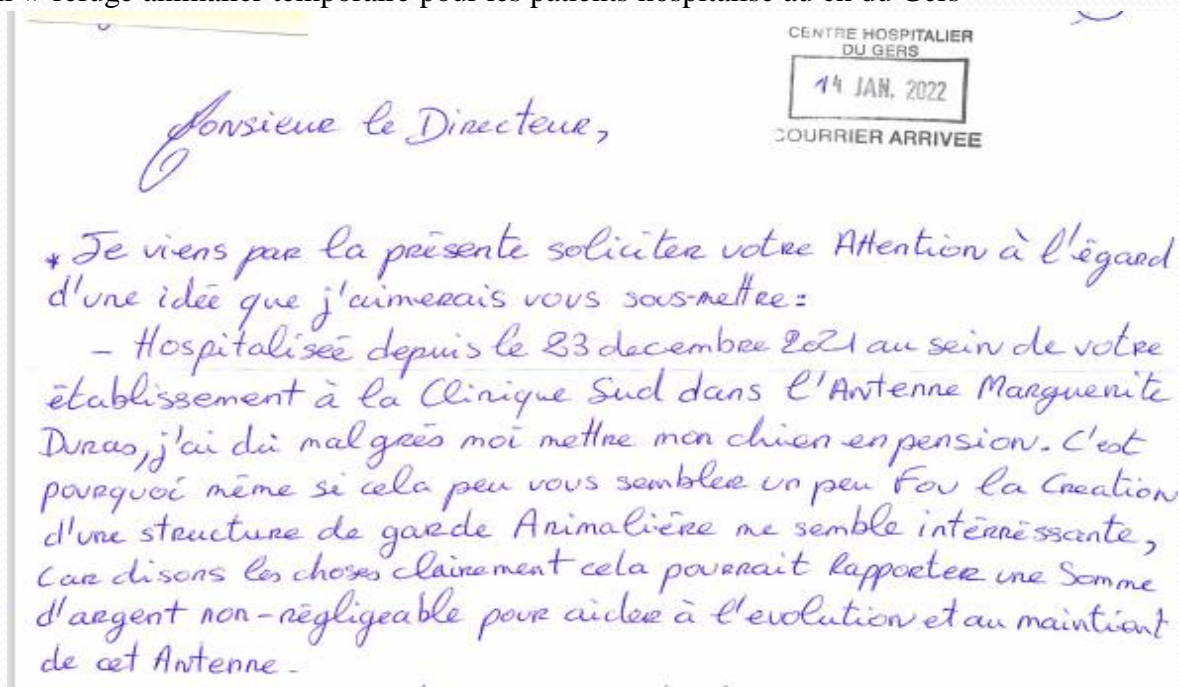 refuge animalier temporaire pour les patients hospitalisé au ch du Gers
CENTRE HOSPITALIER
DU GERS
14 JAN. 2022
COURRIER ARRIVEE
Monsieur le Directeur,
* Je viens par la présente soliciter votre Attention à l'égard
d'une idée que j'aimerais vous sous-mettre :
- Hospitaliseé depuis le 23 decembre 2021 au sein de votre
établissement à la Clinique Sud dans l'Antenne Marguerite
Duras, j'ai dû mal grés moi mettre mon chien en pension. C'est
pourquoi même si cela peu vous sembler un peu Fou la Creation
d'une structure de garde Animalière me semble intérréssante,
Car disons les choses clairement cela pourrait Rapporter une Somme
d'argent non-négligeable pour aider à l'evolution et au maintient
de cet Antenne.